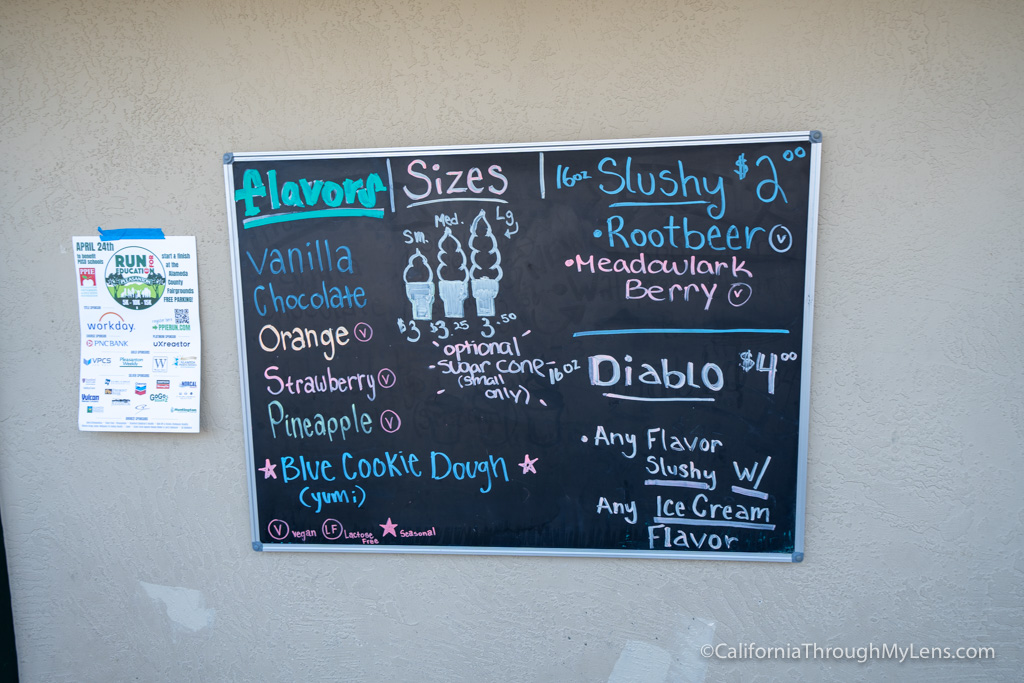 APRIL 24TH
to benefit
PUSD schools
PPIE
RUN
FOR
EDUCATION
5K - 10K - 15K
start & finish
at the
Alameda
County
Fairgrounds
FREE PARKING!
workday.
PPIERUN.COM
PNC BANK
uXreactor
VPCS
Pleasanton Weekly
W
Vulcan
GoGo
NORCAL
flavors
Vanilla
Chocolate
Orange V
Strawberry V
Pineapple V
Blue Cookie Dough
(yumi)
V vegan LF Lactose Free Seasonal
Sizes
Sm. Med. Lg
$3 $3.25 3.50
optional
sugar cone
(small
only)
16oz Slushy $2.00
• Rootbeer V
• Meadowlark
Berry V
16oz Diablo $4.00
• Any Flavor
Slushy w/
Any Ice Cream
Flavor
©CaliforniaThroughMyLens.com